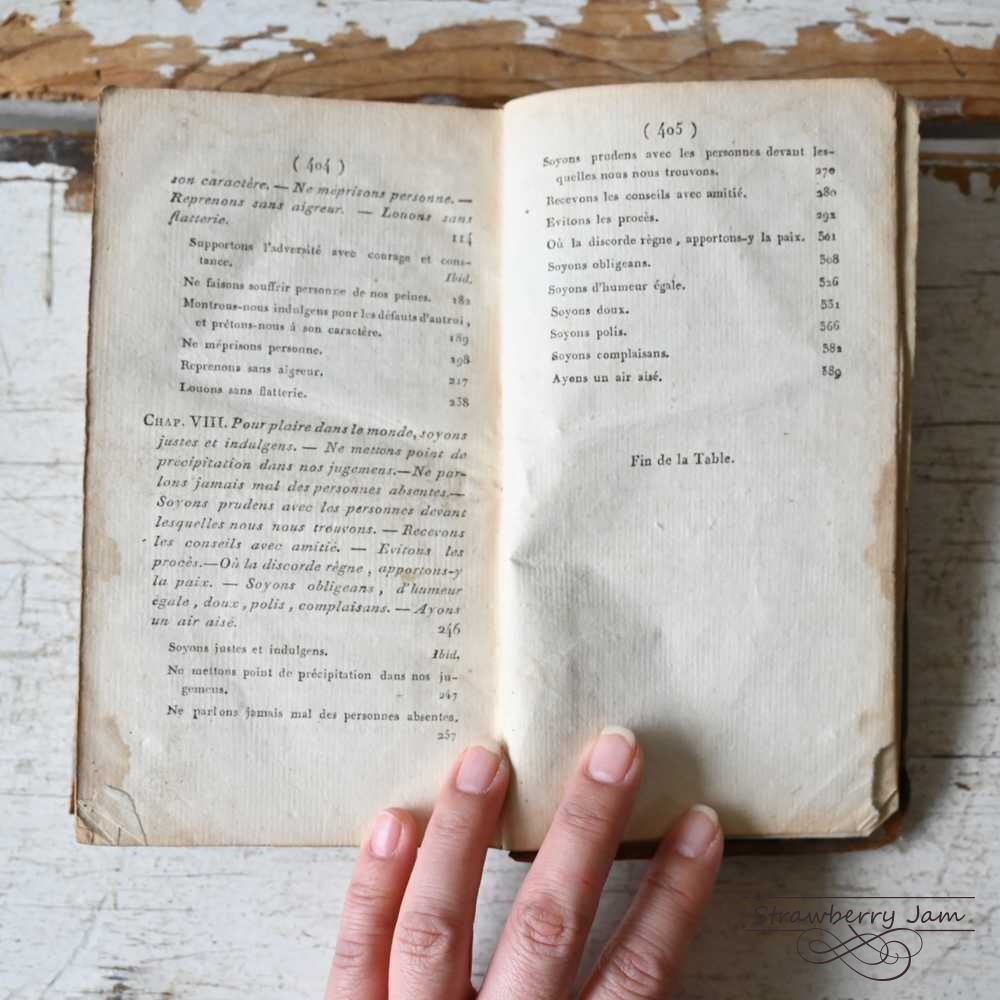 ( 404 )
son caractère. — Ne méprisons personne. —
Reprenons sans aigreur. — Louons sans
flatterie. 114
Supportons l'adversité avec courage et cons-
tance. Ibid.
Ne faisons souffrir personne de nos peines. 182
Montrons-nous indulgens pour les défauts d'autrui,
et prêtons-nous à son caractère. 189
Ne méprisons personne. 198
Reprenons sans aigreur. 217
Louons sans flatterie. 238
CHAP. VIII. Pour plaire dans le monde, soyons
justes et indulgens. — Ne mettons point de
précipitation dans nos jugemens. — Ne par-
lons jamais mal des personnes absentes. —
Soyons prudens avec les personnes devant
lesquelles nous nous trouvons. — Recevons
les conseils avec amitié. — Evitons les
procès. — Où la discorde règne, apportons-y
la paix. — Soyons obligeans, d'humeur
égale, doux, polis, complaisans. — Ayons
un air aisé. 246
Soyons justes et indulgens. Ibid.
Ne mettons point de précipitation dans nos ju-
gemens. 247
Ne parlons jamais mal des personnes absentes.
257
( 405 )
Soyons prudens avec les personnes devant les-
quelles nous nous trouvons. 270
Recevons les conseils avec amitié. 280
Evitons les procès. 292
Où la discorde règne, apportons-y la paix. 301
Soyons obligeans. 308
Soyons d'humeur égale. 326
Soyons doux. 331
Soyons polis. 366
Soyons complaisans. 382
Ayons un air aisé. 389
Fin de la Table.
Strawberry Jam